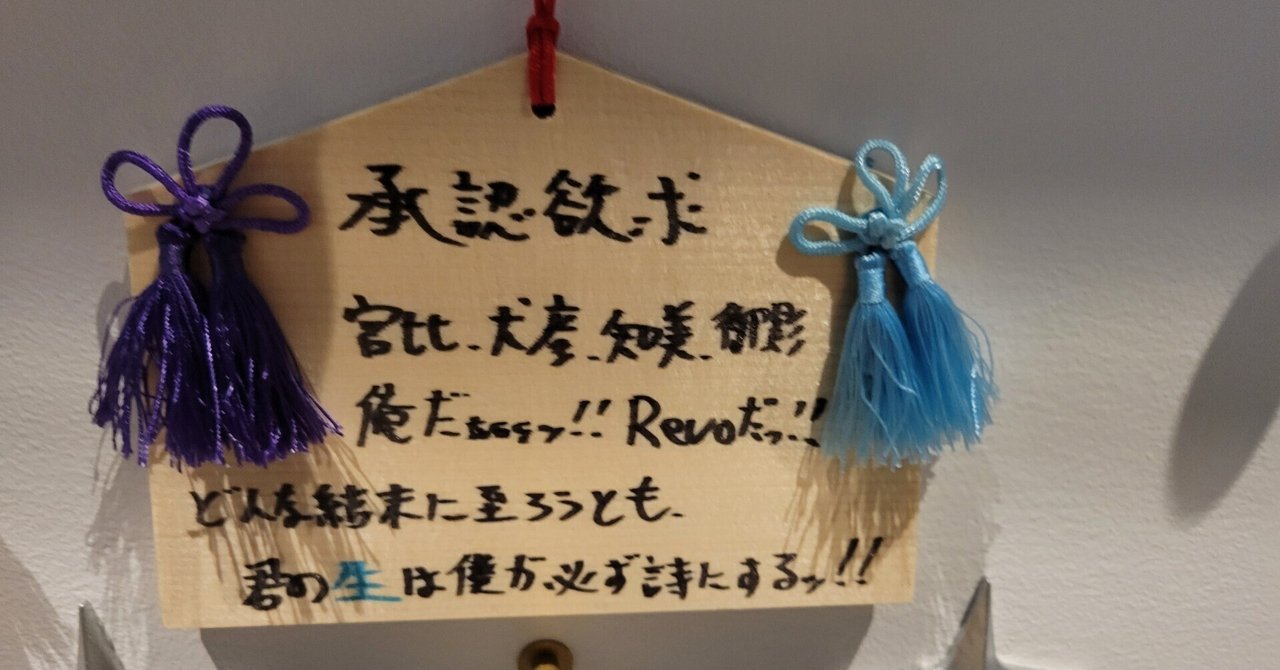 承認欲求
宮比、犬彦、知美、御影
俺だぁぁぁッ!! Revoだっ!!
どんな結末に至ろうとも、
君の生は僕が必ず詩にするッ!!